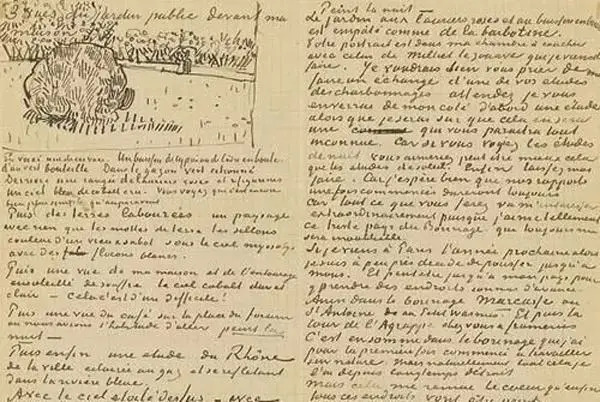 3 Vues du jardin public devant ma
maison
En voici une Un buisson de cyprès ou de cèdre en boule
d'un vert bouteille. Dans le gazon vert citronné
Derrière une rangée de lauriers roses et 2 figurines
un ciel bleu de cobalt cru. Vous voyez que c'est encore
bien plus simple qu'auparavant.
Puis des terres labourées un paysage
avec rien que des mottes de terre les sillons
couleur d'un vieux sabot sous le ciel myosotys
avec des flocons blancs.
Puis une vue de ma maison et de l'entourage
ensoleillé de soufre le ciel cobalt dur et
clair – cela c'est d'un difficile!
Puis une vue du café sur la place du forum
où nous avions l'habitude d'aller peint la
nuit –
Puis enfin une étude du Rhône
de la ville éclairée au gaz et se reflétant
dans la rivière bleue.
Avec le ciel étoilé dessus – avec
Peint la nuit –
Le jardin aux lauriers roses et au buisson en boule
est empâté comme de la barbotine.
Votre portrait est dans ma chambre à coucher
avec celui de Milliet le zouave que je viens de
faire. Je voudrais bien vous prier de me
faire un échange d'une de vos études
des charbonnages attendez je vous
enverrai de mon côté d'abord une étude
alors que je serai sûr que cela en sera
une qui vous paraîtra tout
inconnue. Car si vous voyez les études
de nuit vous aimerez peut être mieux cela
que les études de soleil. Enfin laissez moi
faire. Car j'espère bien que nos rapports
une fois commencés dureront toujours
Car tout ce que vous ferez va m'intéresser
extraordinairement puisque j'aime tellement
ce triste pays du Borinage qui toujours me
sera inoubliable.
Si je viens à Paris l'année prochaine alors
je suis à peu près décidé de pousser jusqu'à
Mons. Et peut être jusqu'à mon pays pour
y prendre des endroits connus d'avance.
Ainsi dans le borinage Marcasse ou
St Antoine de au Petit Wasmes – Et puis la
cour de l'Agrappe chez vous à frameries
C'est en somme dans le borinage que j'ai
pour la première fois commencé à travailler
sur nature. Mais naturellement tout cela je
l'ai depuis longtemps détruit
Mais cela me remue le coeur qu'enfin
tous ces endroits vont être peints